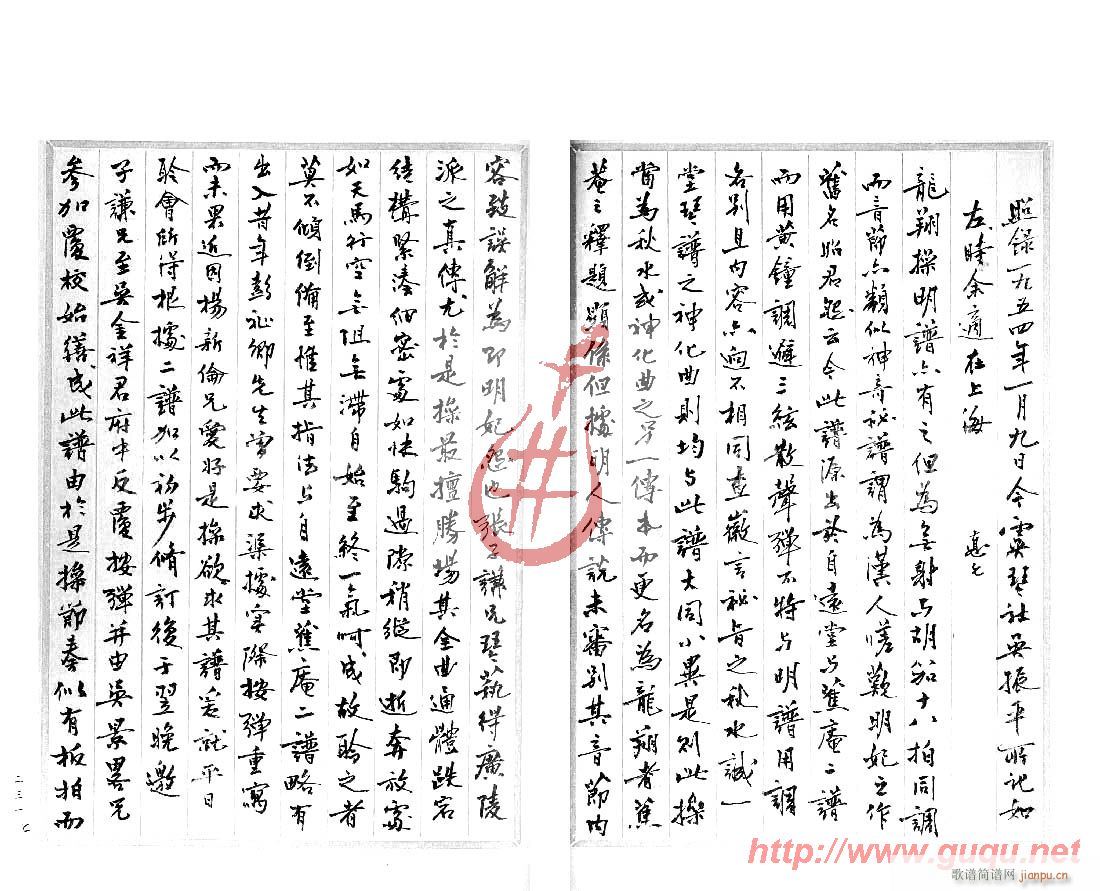 照錄一九五四年一月九日今虞琴社吳振平所記如
左時余適在上海
龍翔操明譜亦有之但為無射与胡笳十八拍同調
而音節亦類似神奇秘譜謂為漢人嗟歎明妃之作
舊名昭君怨云今此譜源出於自遠堂与蕉庵二譜
而用黃鐘調遞三絃散聲彈不特与明譜用調
各別且內容亦迥不相同查徽言秘旨之秋水誠一
堂琴譜之神化曲則均与此譜大同小異是則此操
當為秋水或神化曲之另一傳本而更名為龍翔者蕉
菴之釋題顯係但據明人傳說未審別其音節內
容致誤解為即明妃怨也張子謙兄琴藝得廣陵
派之真傳尤於是操最擅勝場其全曲通體跌宕
結構緊湊細密處如快駒過隙稍縱即逝奔放處
如天馬行空無阻無滯自始至終一氣呵成故聆之者
莫不傾倒備至惟其指法与自遠堂蕉庵二譜略有
出入昔年彭祉卿先生曾要求渠據實際按彈重寫
而未果近因楊新倫兄愛好是操欲求其譜爰就平日
聆會所得根據二譜加以初步脩訂後于翌晚邀
子謙兄至吳金祥君府中反覆按彈并由吳景畧兄
參加覆校始繕成此譜由於是操節奏似有板拍而
二三一
http://www.guqu.net
歌谱简谱网 jianpu.cn